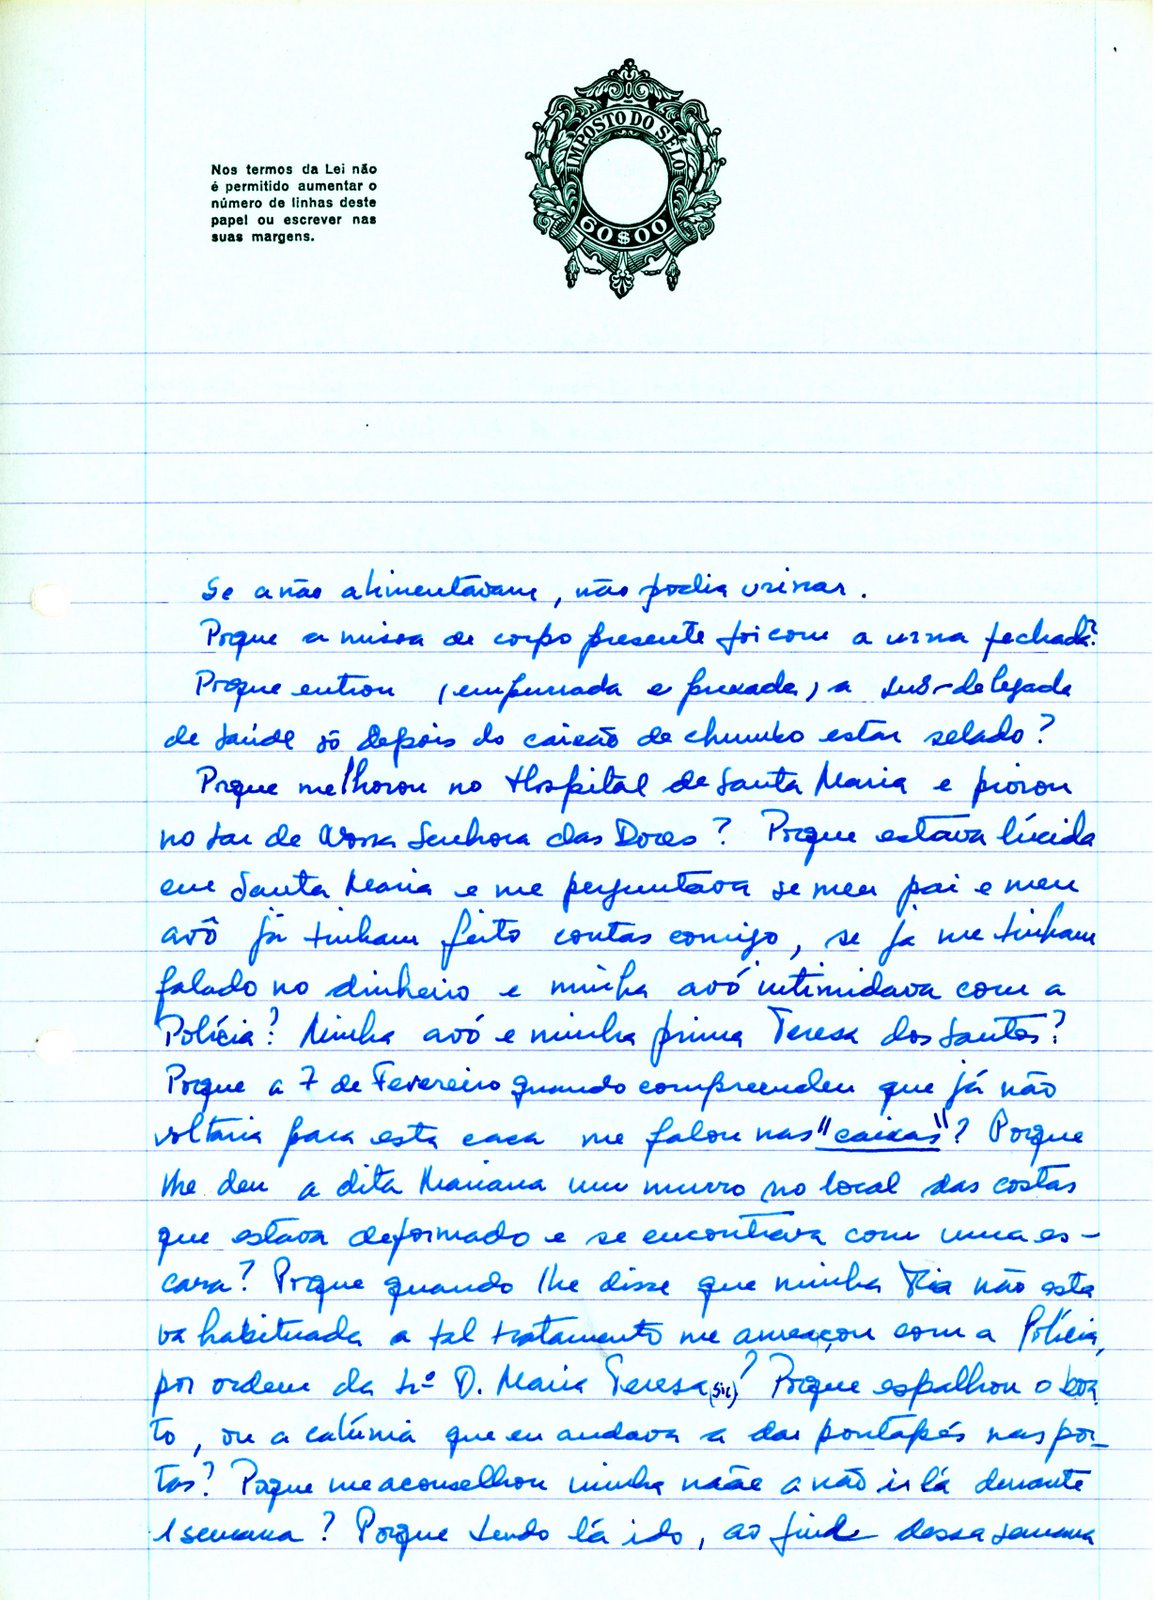 IMPOSTO DO SELO
60$00
Nos termos da Lei não
é permitido aumentar o
número de linhas deste
papel ou escrever nas
suas margens.
Se a não alimentavam, não podia urinar.
Porque a missa de corpo presente foi com a urna fechada?
Porque entrou (empurrada e puxada) a sub-delegada
de saúde só depois do caixão de chumbo estar selado?
Porque melhorou no Hospital de Santa Maria e piorou
no Lar de Nossa Senhora das Dores? Porque estava lúcida
em Santa Maria e me perguntava se meu pai e meu
avô já tinham feito contas comigo, se já me tinham
falado no dinheiro e minha avó intimidava com a
Polícia? Minha avó e minha prima Teresa dos Santos?
Porque a 7 de Fevereiro quando compreendeu que já não
voltaria para esta casa me falou nas "caixas"? Porque
lhe deu a dita Mariana um murro no local das costas
que estava deformado e se encontrava com uma es-
cara? Porque quando lhe disse que minha Tia não esta
va habituada a tal tratamento me ameaçou com a Polícia,
por ordem da Srª D. Maria Teresa (sic)? Porque espalhou o boa
to, ou a calúnia que eu andava a dar pontapés nas por-
tas? Porque me aconselhou minha mãe a não ir lá durante
1 semana? Porque tendo lá ido, ao fim dessa semana